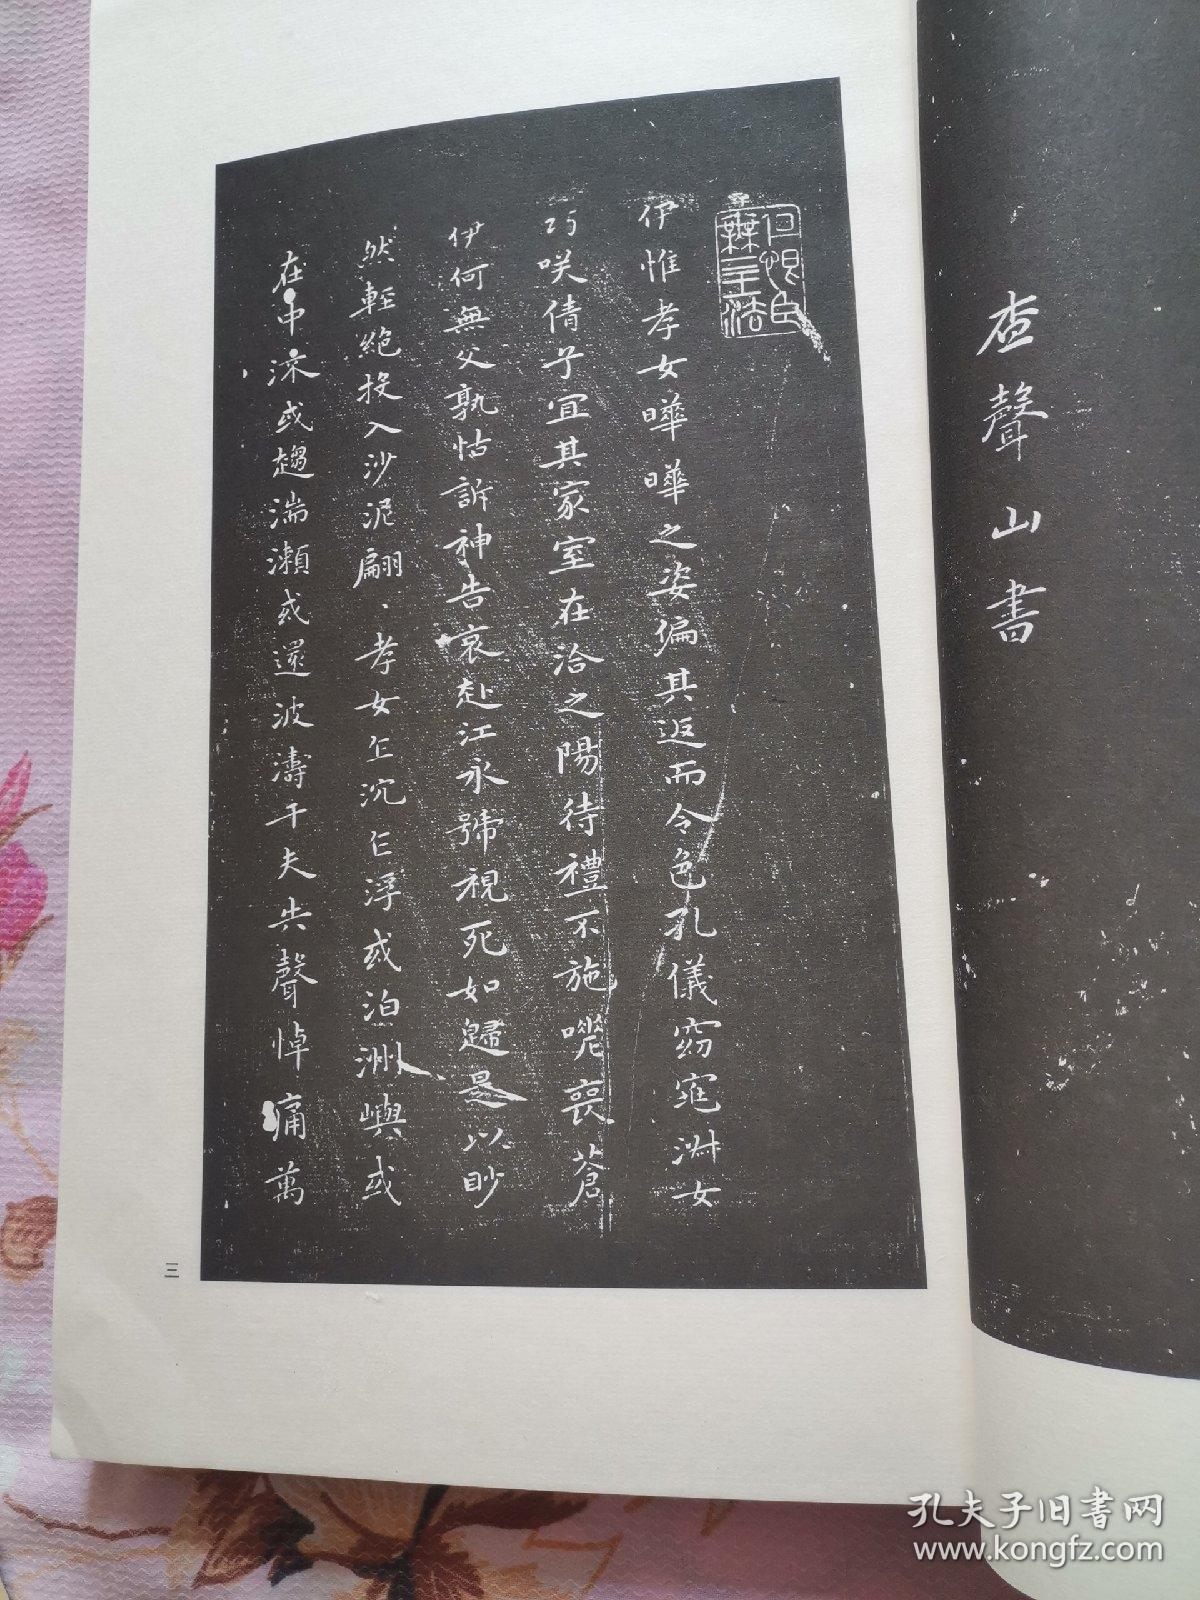 查聲山書
伊惟孝女曄曄之姿偏其返而令色孔儀窈窕淑女
巧咲倩兮宜其家室在洽之陽待禮不施嗟喪蒼
伊何無父孰怙訴神告哀赴江永號視死如歸是以眇
然輕絶投入沙泥翩、孝女乍沉乍浮或泊洲嶼或
在中流或趨湍瀨或還波濤千夫失聲悼痛萬
三
孔夫子旧书网
www.kongfz.com